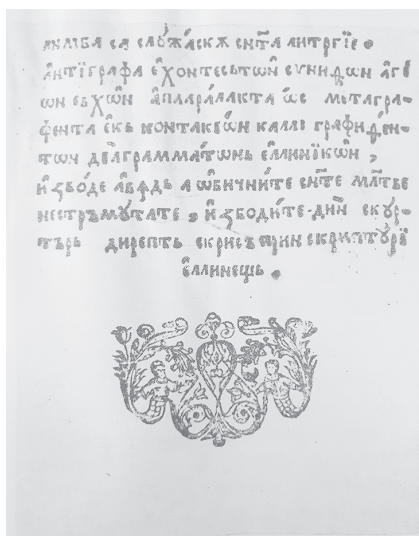 ꙟнлімба са слꙋжаскѫ сн҃та литргіе •
а҆нтїграфа е҆хонтесьтѡн҆ сѵнидѡн а҆гі
ѡн еѵхѡ҆н а҆паралакта ѡ҆с метагра-
фента е҆кь контакѣѡн каллі графиѳен-
тѡн грамматѡнь е҆ллинїкѡ҆н ,
и҆ꙁводе а҆вѫдь а ѡ҆бичните сн҃те мл҃тве
нестрѫмꙋтате , и҆ꙁводите дин҆ скꙋр-
търь дирепть скрисъ прин скриптꙋрї
е҆ллинещь .